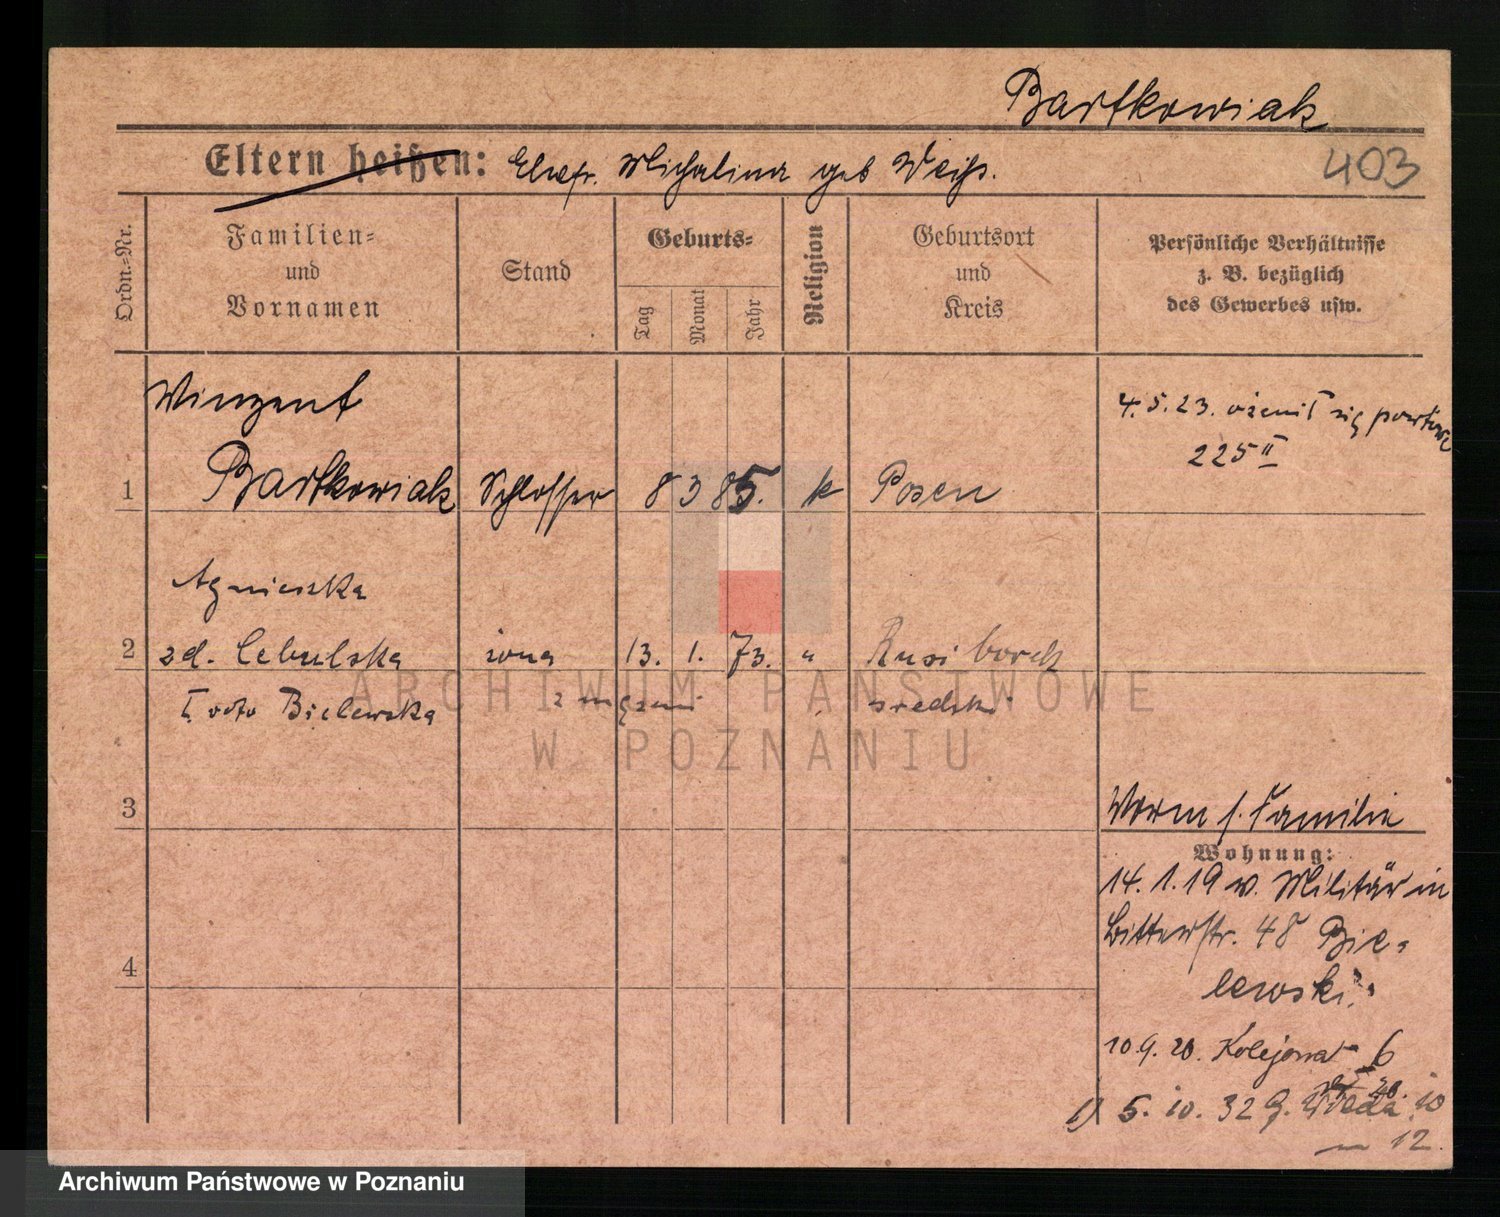 Bartkowiak
Eltern heißen: Ehefr. Michalina geb Weiß.
403
Ordn.-Nr.
Familien-
und
Vornamen
Stand
Geburts-
Tag
Monat
Jahr
Religion
Geburtsort
und
Kreis
Persönliche Verhältnisse
z. B. bezüglich
des Gewerbes usw.
Winzent
4. 5. 23. ożenił się
225 II
1 Bartkowiak Schlosser 8 3 85. k Posen
Agnieszka
2 zd. Cebulska żona 13. 1. 73. " Rusiborek
I voto Bielewska średzki
ARCHIWUM PAŃSTWOWE
W POZNANIU
3
Familie
Wohnung:
14. 1. 19 v. Militär in
Bitterstr. 48 Bie-
lewski.
4
10.9.20. Kolejowa 6
5. 10. 32 G. Wilda 10
12.
Archiwum Państwowe w Poznaniu